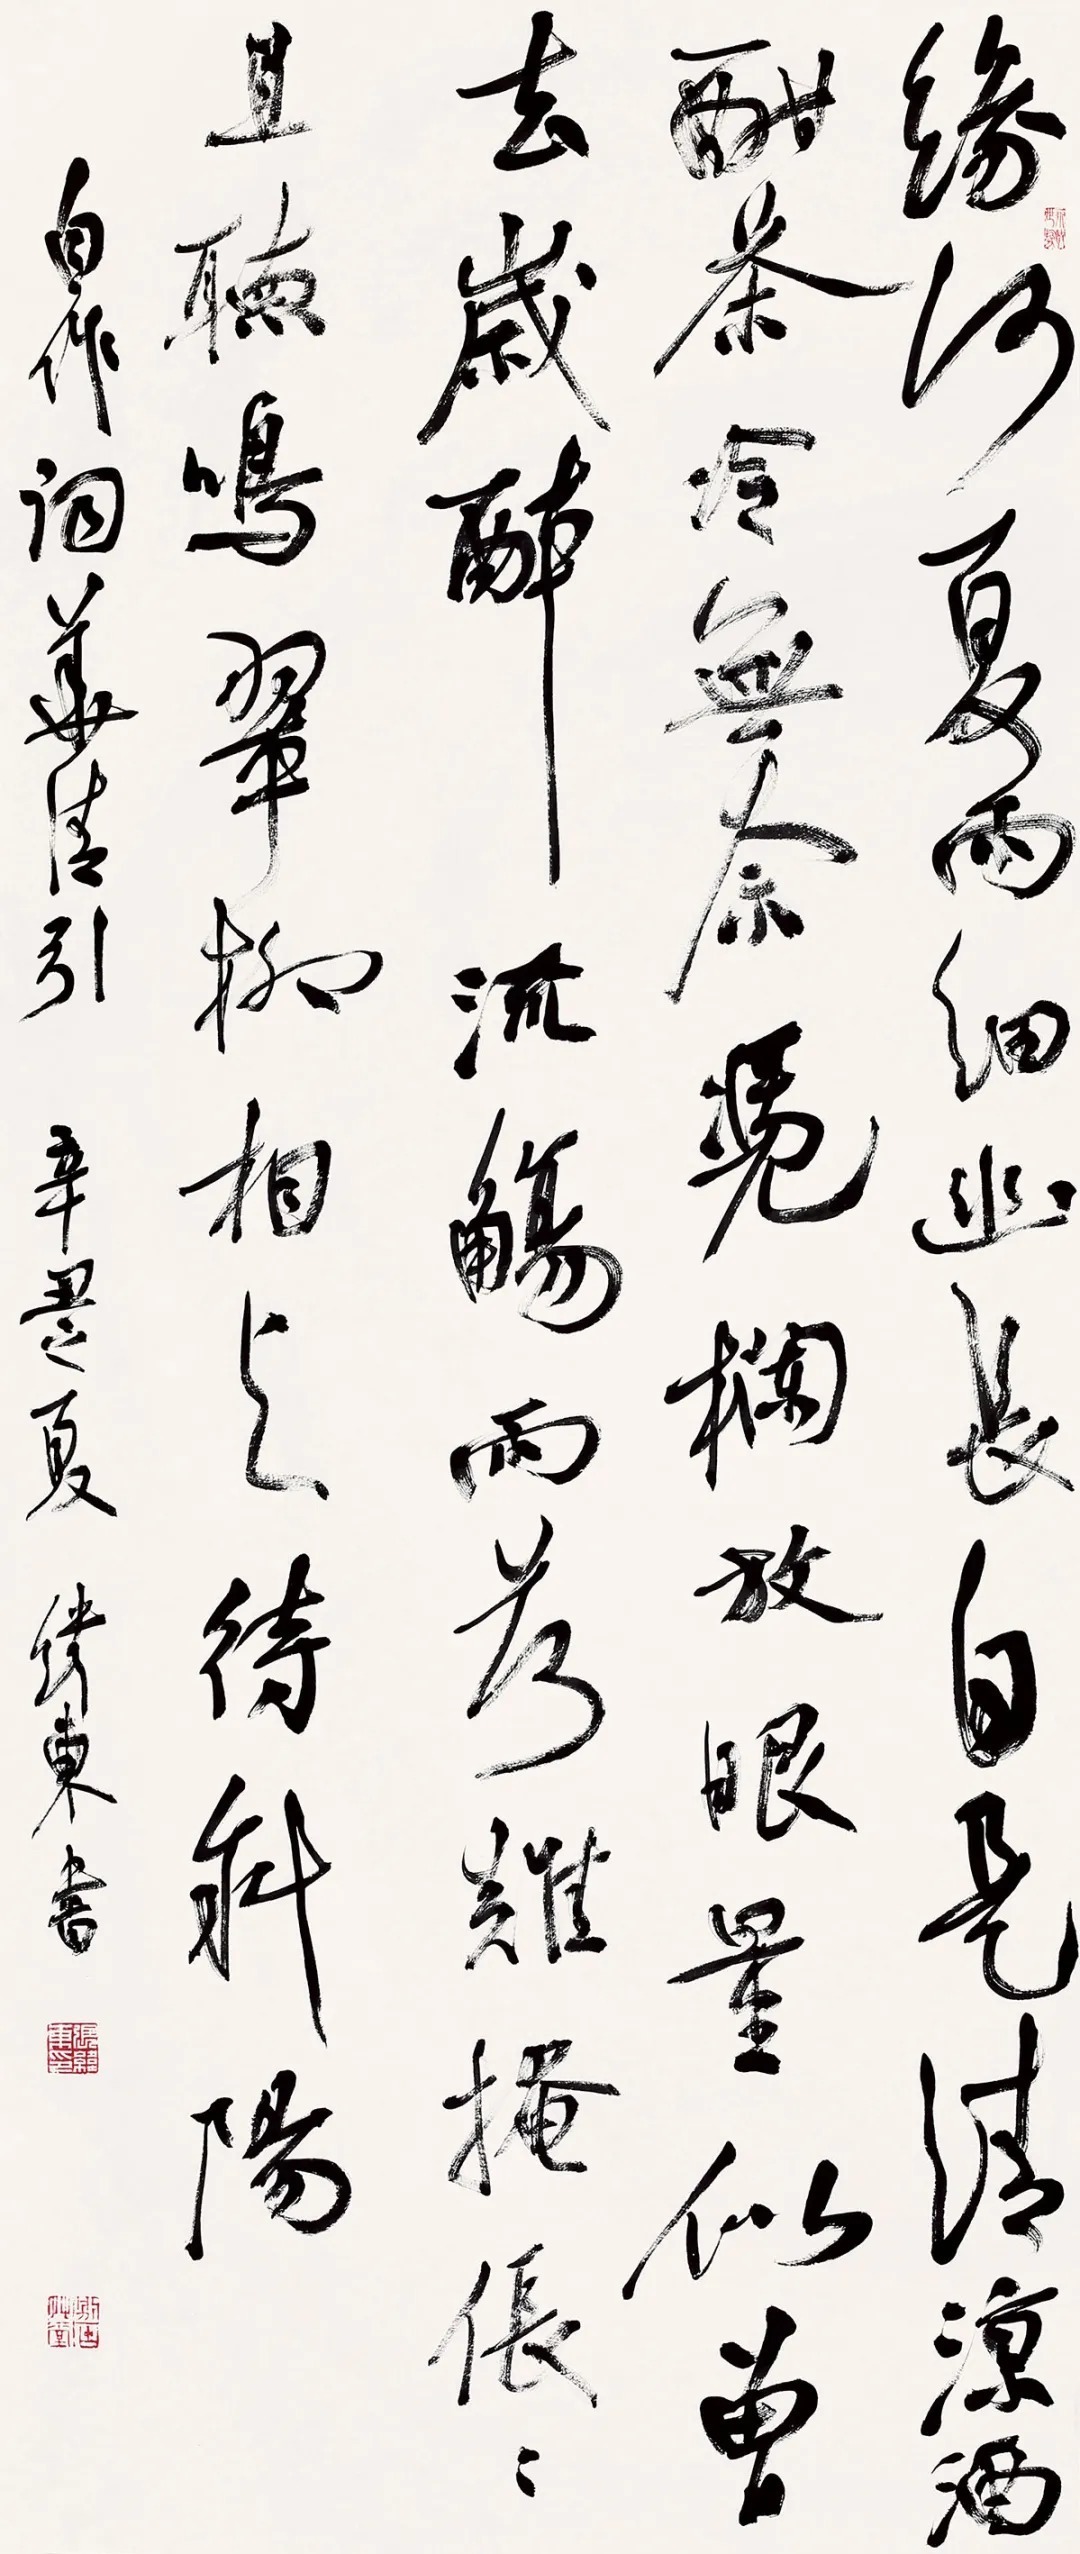 緣河夏雨細幽長自是清涼酒
酣茶冷無奈凴欄放眼量似曾
去歲醉流觴雨落難掩倀〻
且聽鳴翠柳相与待斜陽
自作詞華清引 辛丑之夏 東書